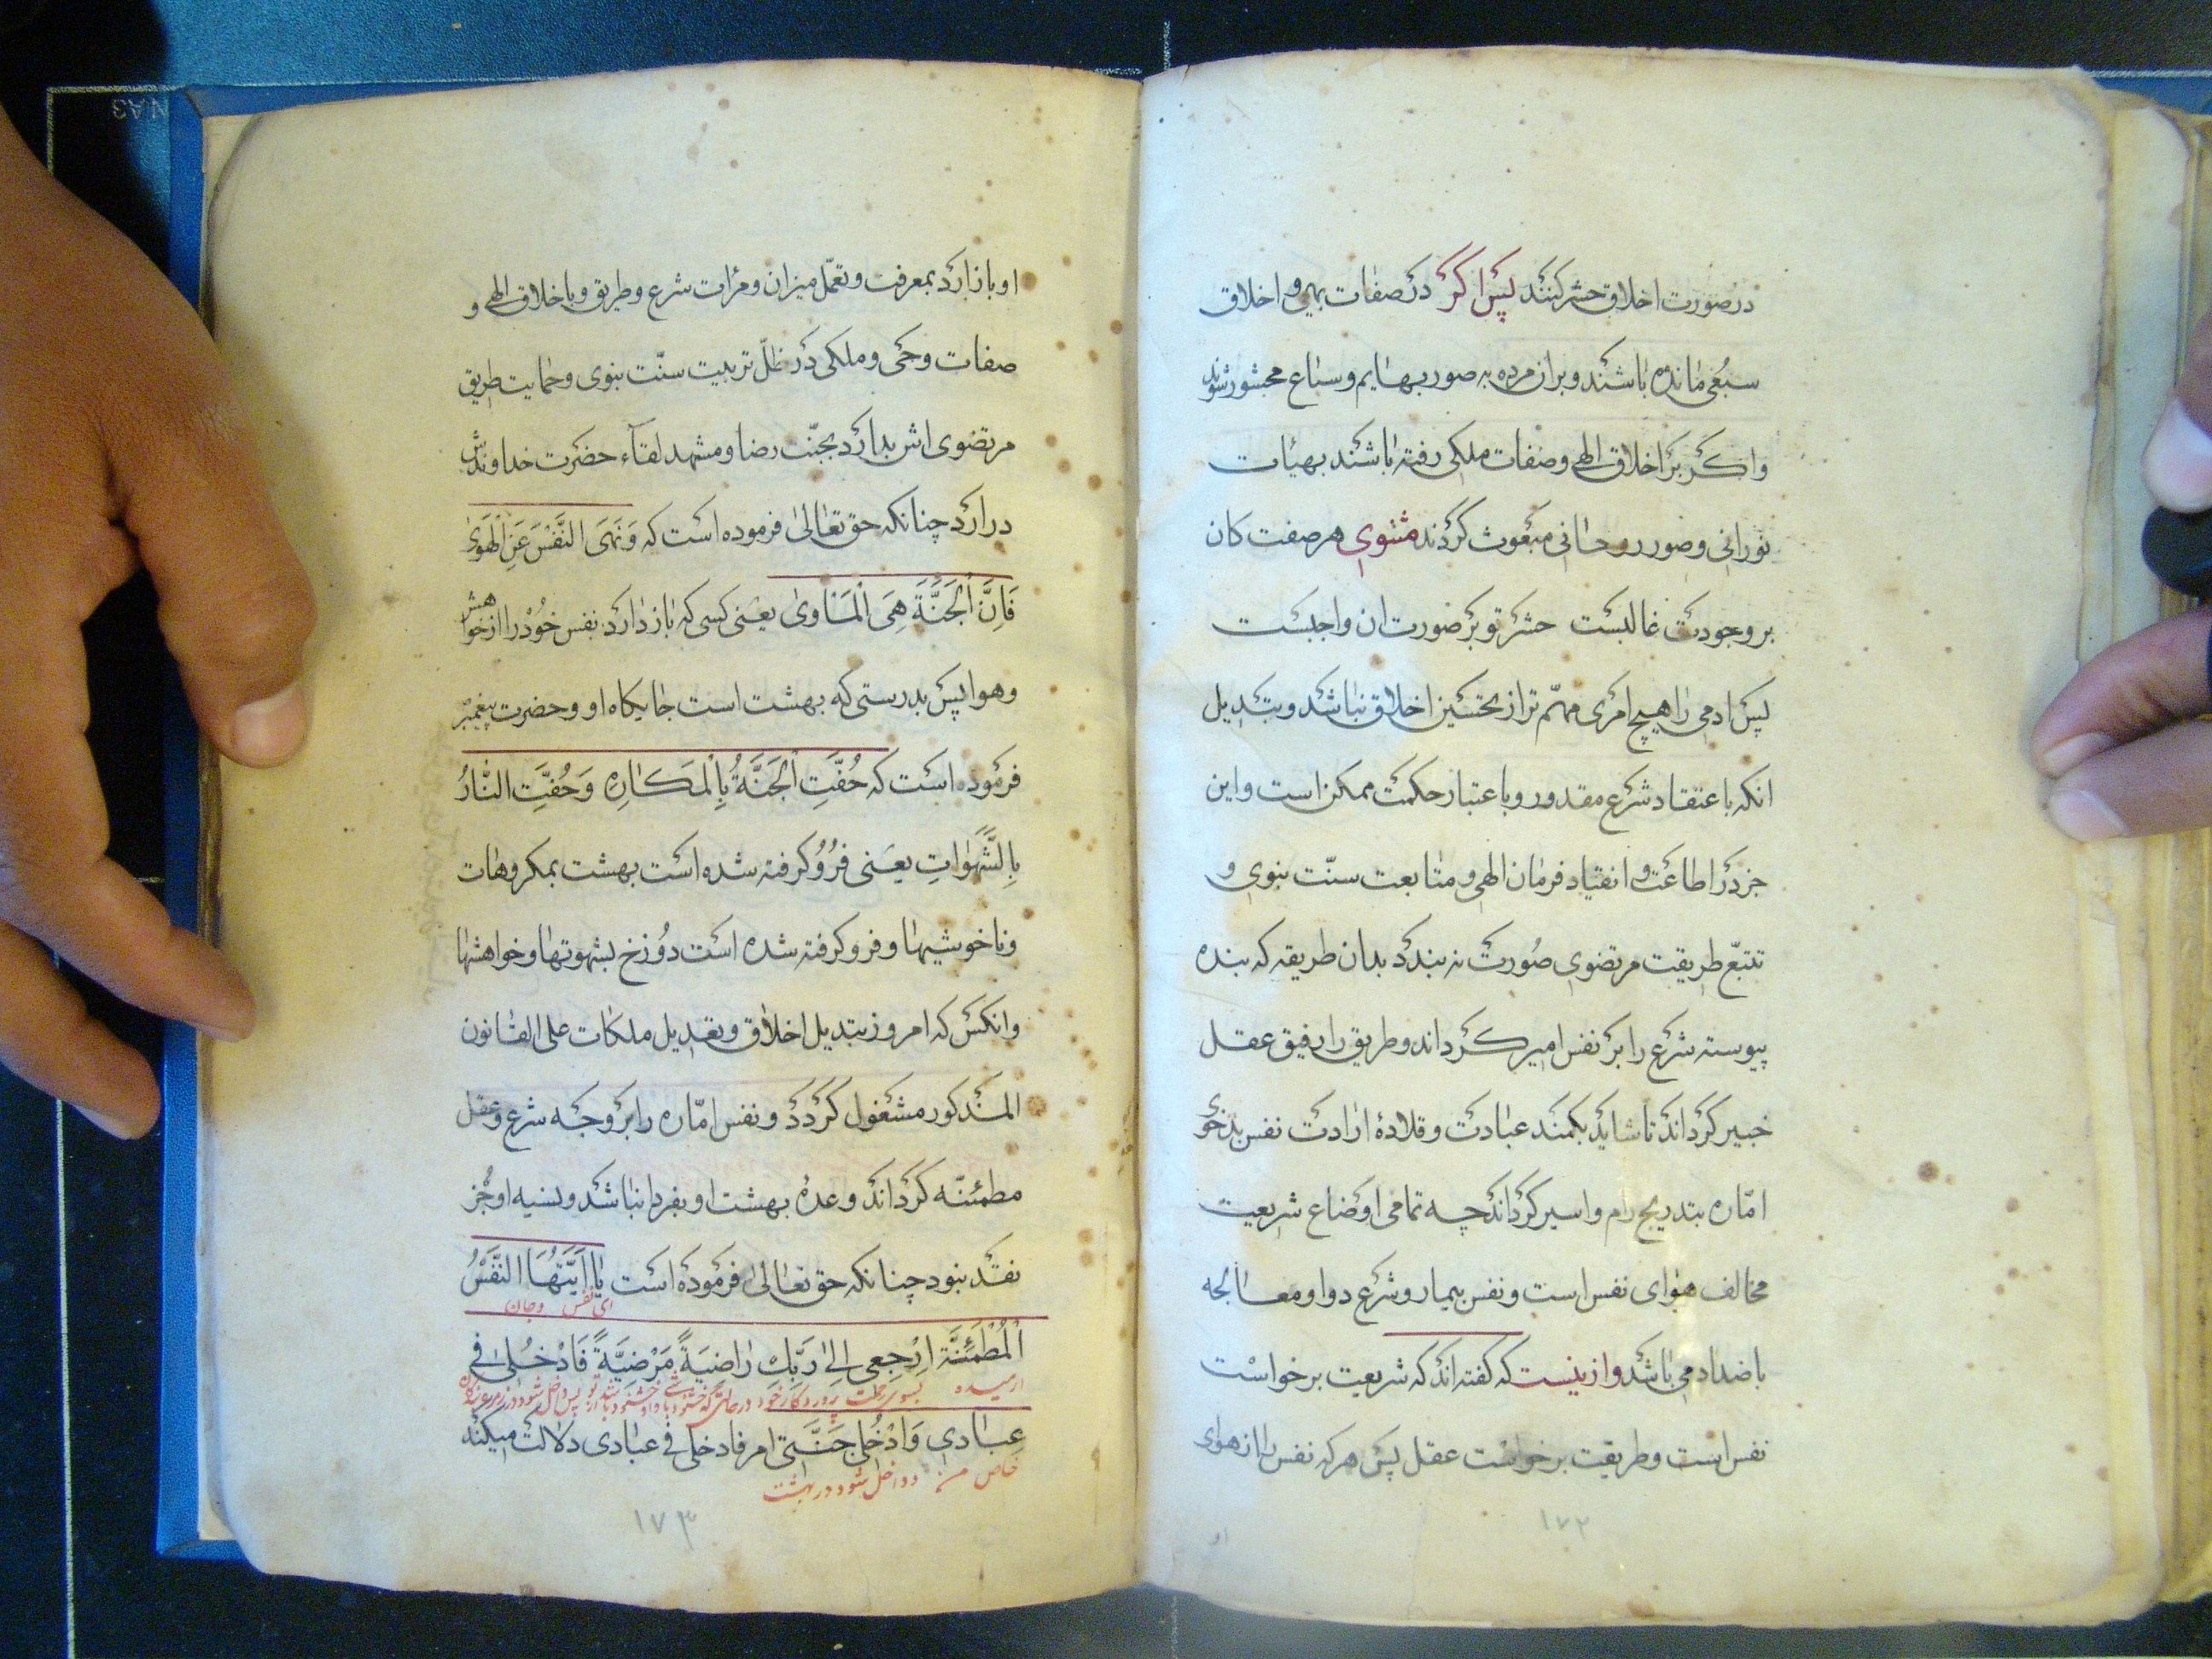 در صورت اخلاق حشر کنند پس اگر در صفات بهیمی و اخلاق
سبعی مانده باشند و بران مرده به صور بهایم و سباع محشور شوند
و اگر بر اخلاق الهی و صفات ملکی رفته باشند بهیئات
نورانی و صور روحانی مبعوث گردند مثنوی هر صفت کان
بر وجودت غالبست حشر تو بر صورت ان واجبست
پس ادمی را هیچ امری مهم تر از تحسین اخلاق نباشد و تبدیل
انکه باعتقاد شرع مقدور و باعتبار حکمت ممکن است و این
جز در اطاعت و انقیاد فرمان الهی و متابعت سنّت نبوی و
تتبّع طریقت مرتضوی صورت نه بندد بدان طریقه که بنده
پیوسته شرع را بر نفس امیر گرداند و طریق را رفیق عقل
خبیر گرداند تا شاید بکمند عبادت و قلادهٔ ارادت نفس بدخوی
امّاره بتدریج رام و اسیر گرداند چه تمامی اوضاع شریعت
مخالف هوای نفس است و نفس بیمار و شرع دوا و معالجه
باضداد می باشد و ازینست که گفته اند که شریعت برخواست
نفس است و طریقت برخواست عقل پس هر که نفس را از هوای
او
١٧٢
او باز ارد بمعرفت و تعمّل میزان و مرات شرع و طریق و باخلاق الهی و
صفات وحیی و ملکی در ظلّ تربیت سنّت نبوی و حمایت طریق
مرتضوی اش بدارد بجنّت رضا و مشهد لقآء حضرت خداوندش
در ارد چنانکه حق تعالی فرموده است که وَنَهَی النَّفْسَ عَنِ الْهَوٰی
فَاِنَّ الْجَنَّةَ هِیَ الْمَاْویٰ یعنی کسی که باز دارد نفس خود را از خواهش
و هوا پس بدرستی که بهشت است جایکاه او و حضرت پیغمبر
فرموده است که حُفَّتِ الْجَنَّةُ بِالْمَکَارِهِ وَحُفَّتِ النَّارُ
بِالشَّهَوٰاتِ یعنی فرو گرفته شده است بهشت بمکروهات
و ناخوشیها و فرو گرفته شده است دوزخ بشهوتها و خواهشها
و انکس که امروز بتبدیل اخلاق و تعدیل ملکات علی القانون
المذکور مشغول گردد و نفس امّاره را بر وجه شرع و عقل
مطمئنّه گرداند وعدهٔ بهشت او بفردا نباشد و نسیه او جز
نقد نبود چنانکه حق تعالی فرموده است یٰا اَیَّتُهَا النَّفْسُ
ای نفس و جان
الْمُطْمَئِنَّة اِرْجِعِی اِلٰی رَبِّكِ رٰاضِیَةً مَرْضِیَّةً فَادْخُلِیٰ فِی
ارمیده بسوی رحمت پروردکار خود در حالتی که
عِبٰادِی وَادْخُلِی جَنَّتِی امر فادخلی فی عبادی دلالت میکند
خاص من و داخل شو در بهشت
١٧٣